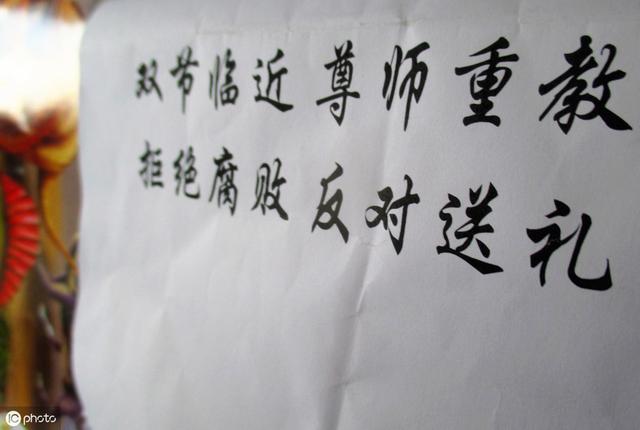 双节临近 尊师重教
拒绝腐败 反对送礼
IC photo